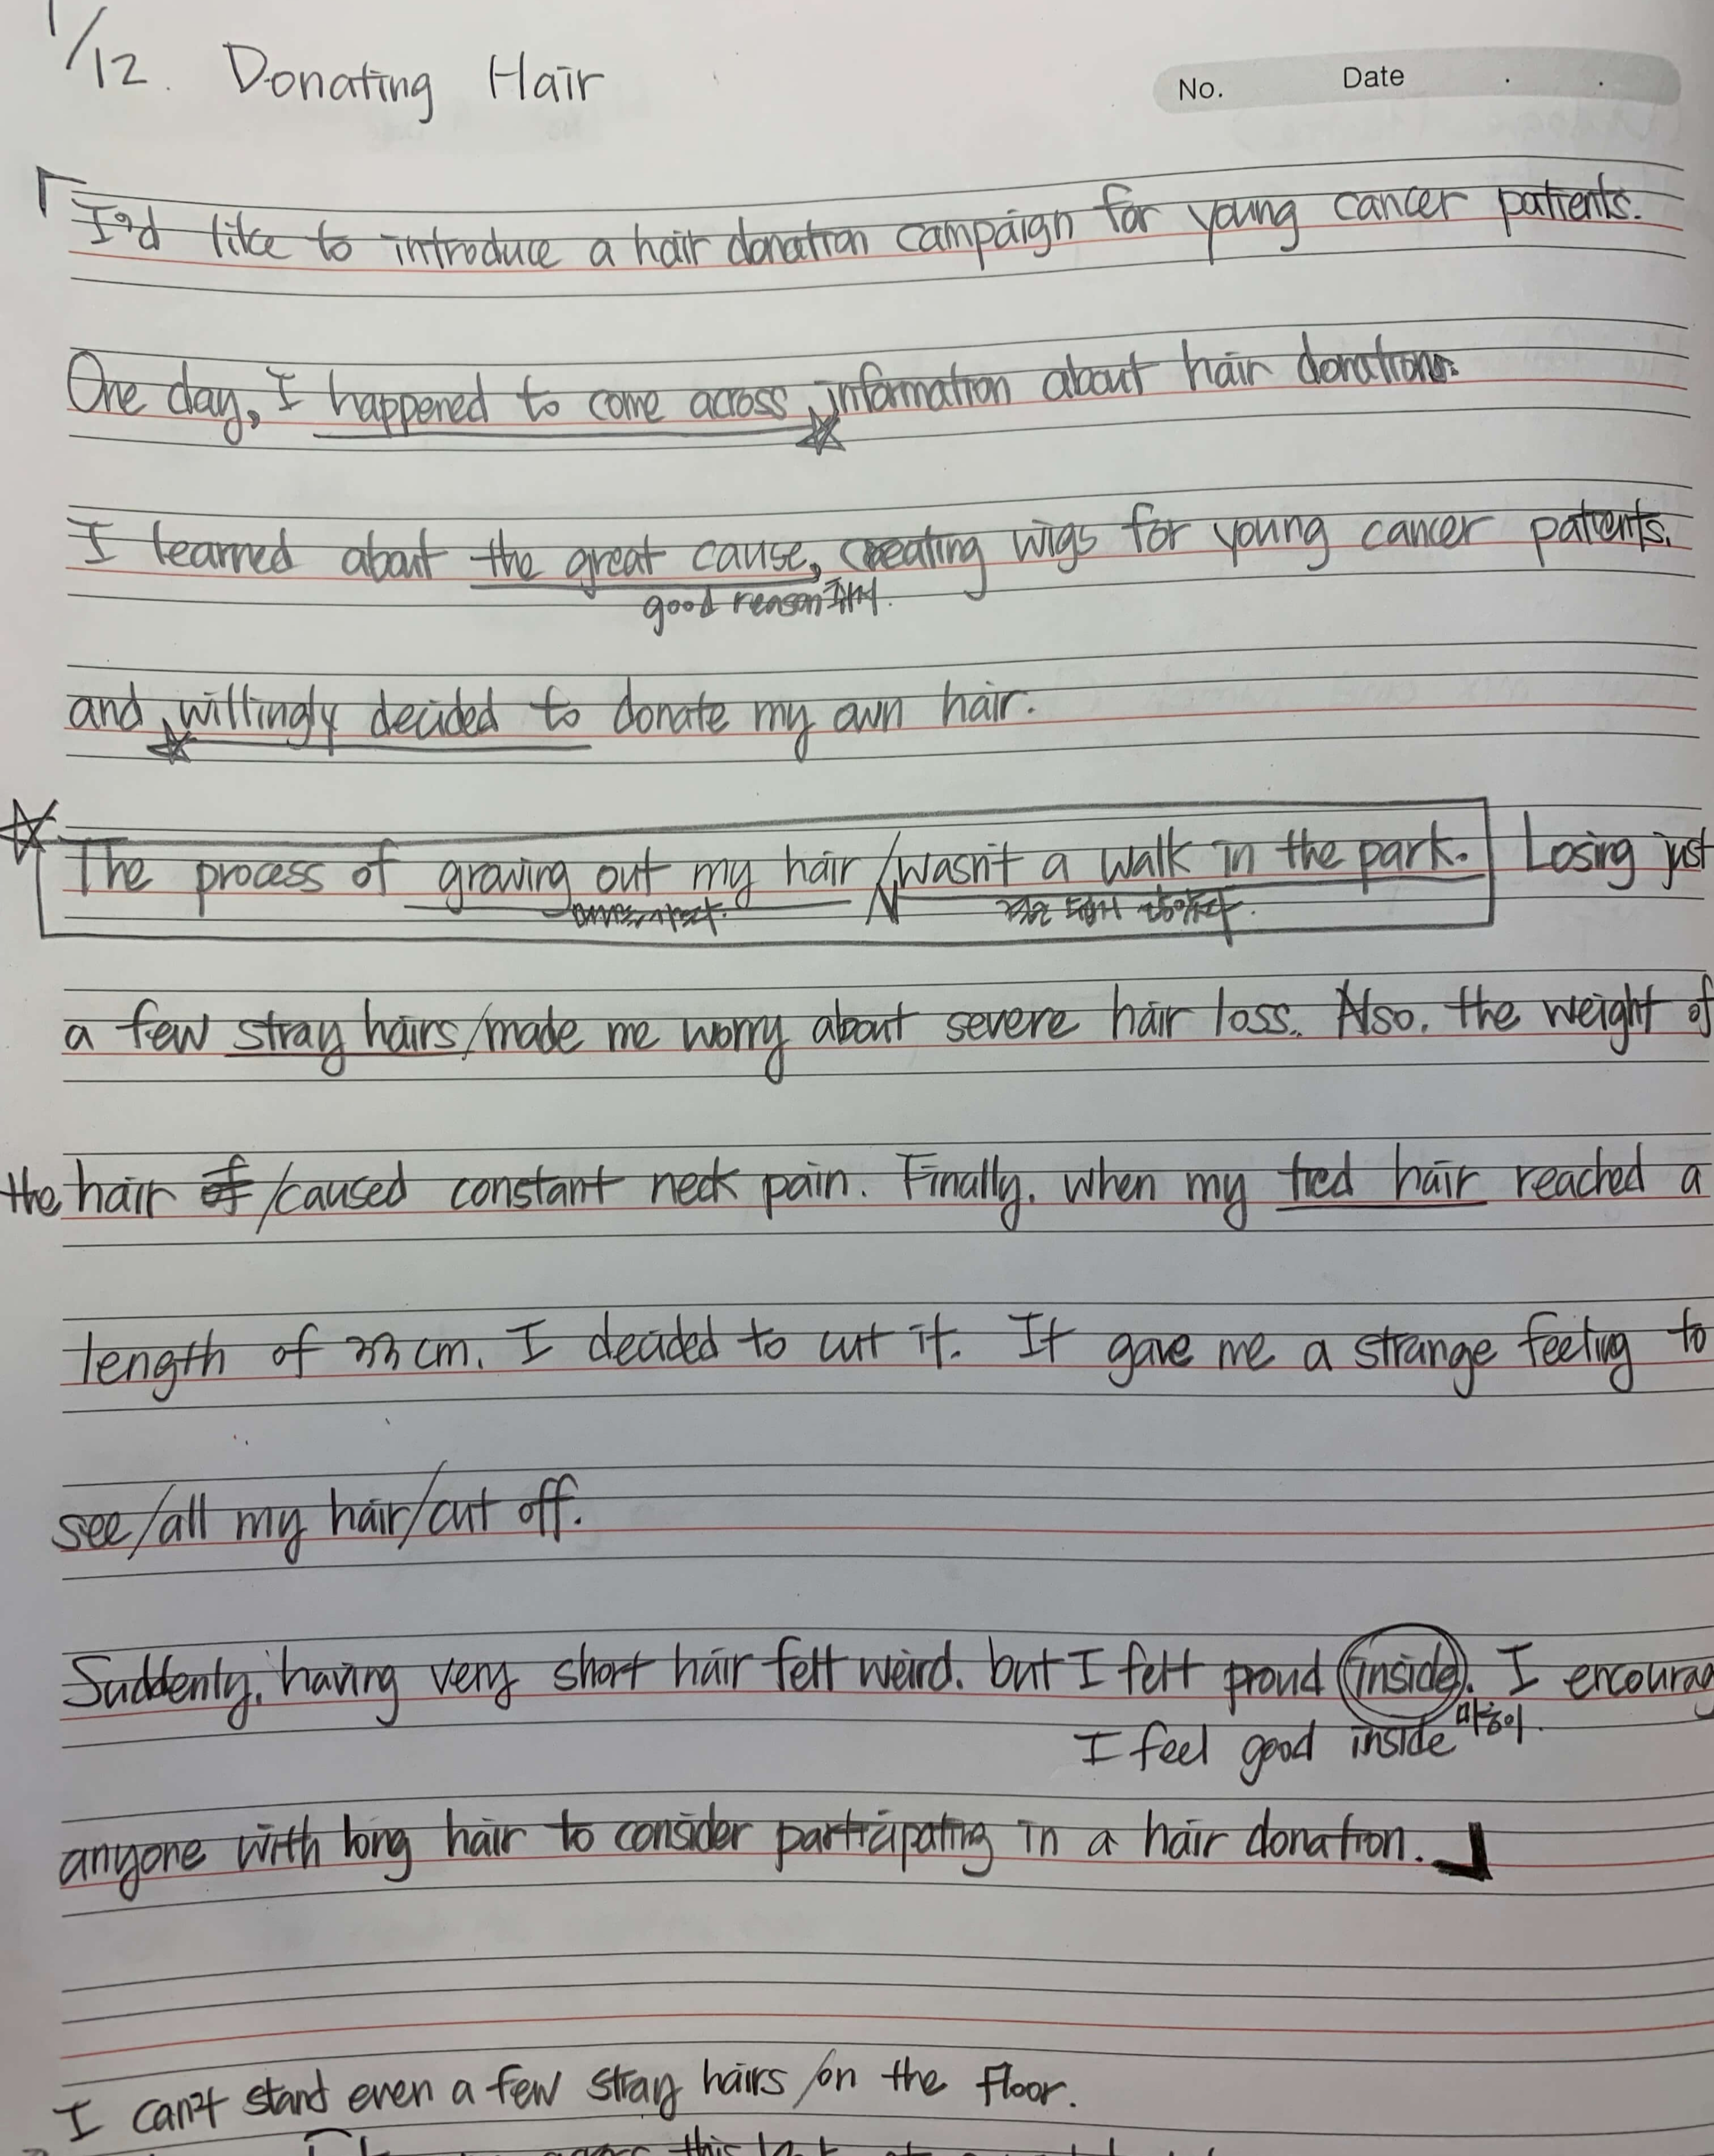 1/12. Donating Hair
No. Date . .
I'd like to introduce a hair donation campaign for young cancer patients.
One day, I happened to come across information about hair donations.
I learned about the great cause, creating wigs for young cancer patients,
good reason 취지.
and willingly decided to donate my own hair.
The process of growing out my hair / wasn't a walk in the park. Losing just
a few stray hairs / made me worry about severe hair loss. Also, the weight of
the hair / caused constant neck pain. Finally, when my tied hair reached a
length of 33 cm, I decided to cut it. It gave me a strange feeling to
see / all my hair / cut off.
Suddenly, having very short hair felt weird, but I felt proud inside. I encourag
I feel good inside 마음이.
anyone with long hair to consider participating in a hair donation.
I can't stand even a few stray hairs / on the floor.